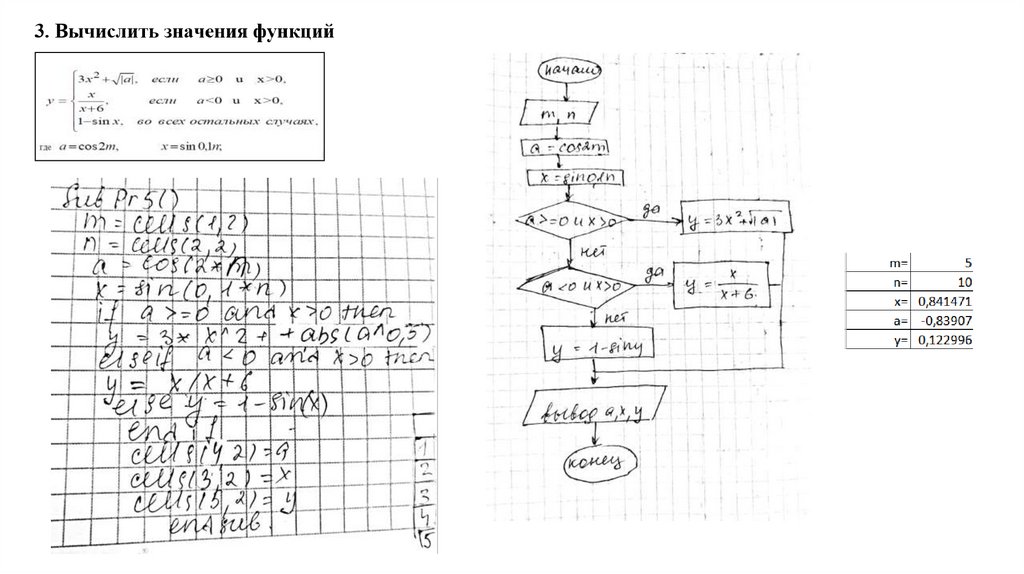 3. Вычислить значения функций
y = { 3x² + √|a|, если a≥0 и x>0,
x/(x+6), если a<0 и x>0,
1−sin x, во всех остальных случаях,
где a=cos2m, x=sin 0,1n;
Sub Pr5()
m = cells(1,2)
n = cells(2,2)
a = cos(2*m)
x = sin(0,1*n)
if a>=0 and x>0 then
y = 3* x^2 + +abs(a^0,5)
elseif a<0 and x>0 then
y = x/x+6
else y = 1-sin(x)
end if
cells(4,2)=a
cells(3,2)=x
cells(5,2)=y
end sub.
1
2
3
4
5
начало
m, n
a = cos2m
x = sin0,1n
a>=0 и x>0
да
y = 3x²+√|a|
нет
a<0 и x>0
да
y = x/(x+6)
нет
y = 1-siny
вывод a,x,y
конец
m= 5
n= 10
x= 0,841471
a= -0,83907
y= 0,122996